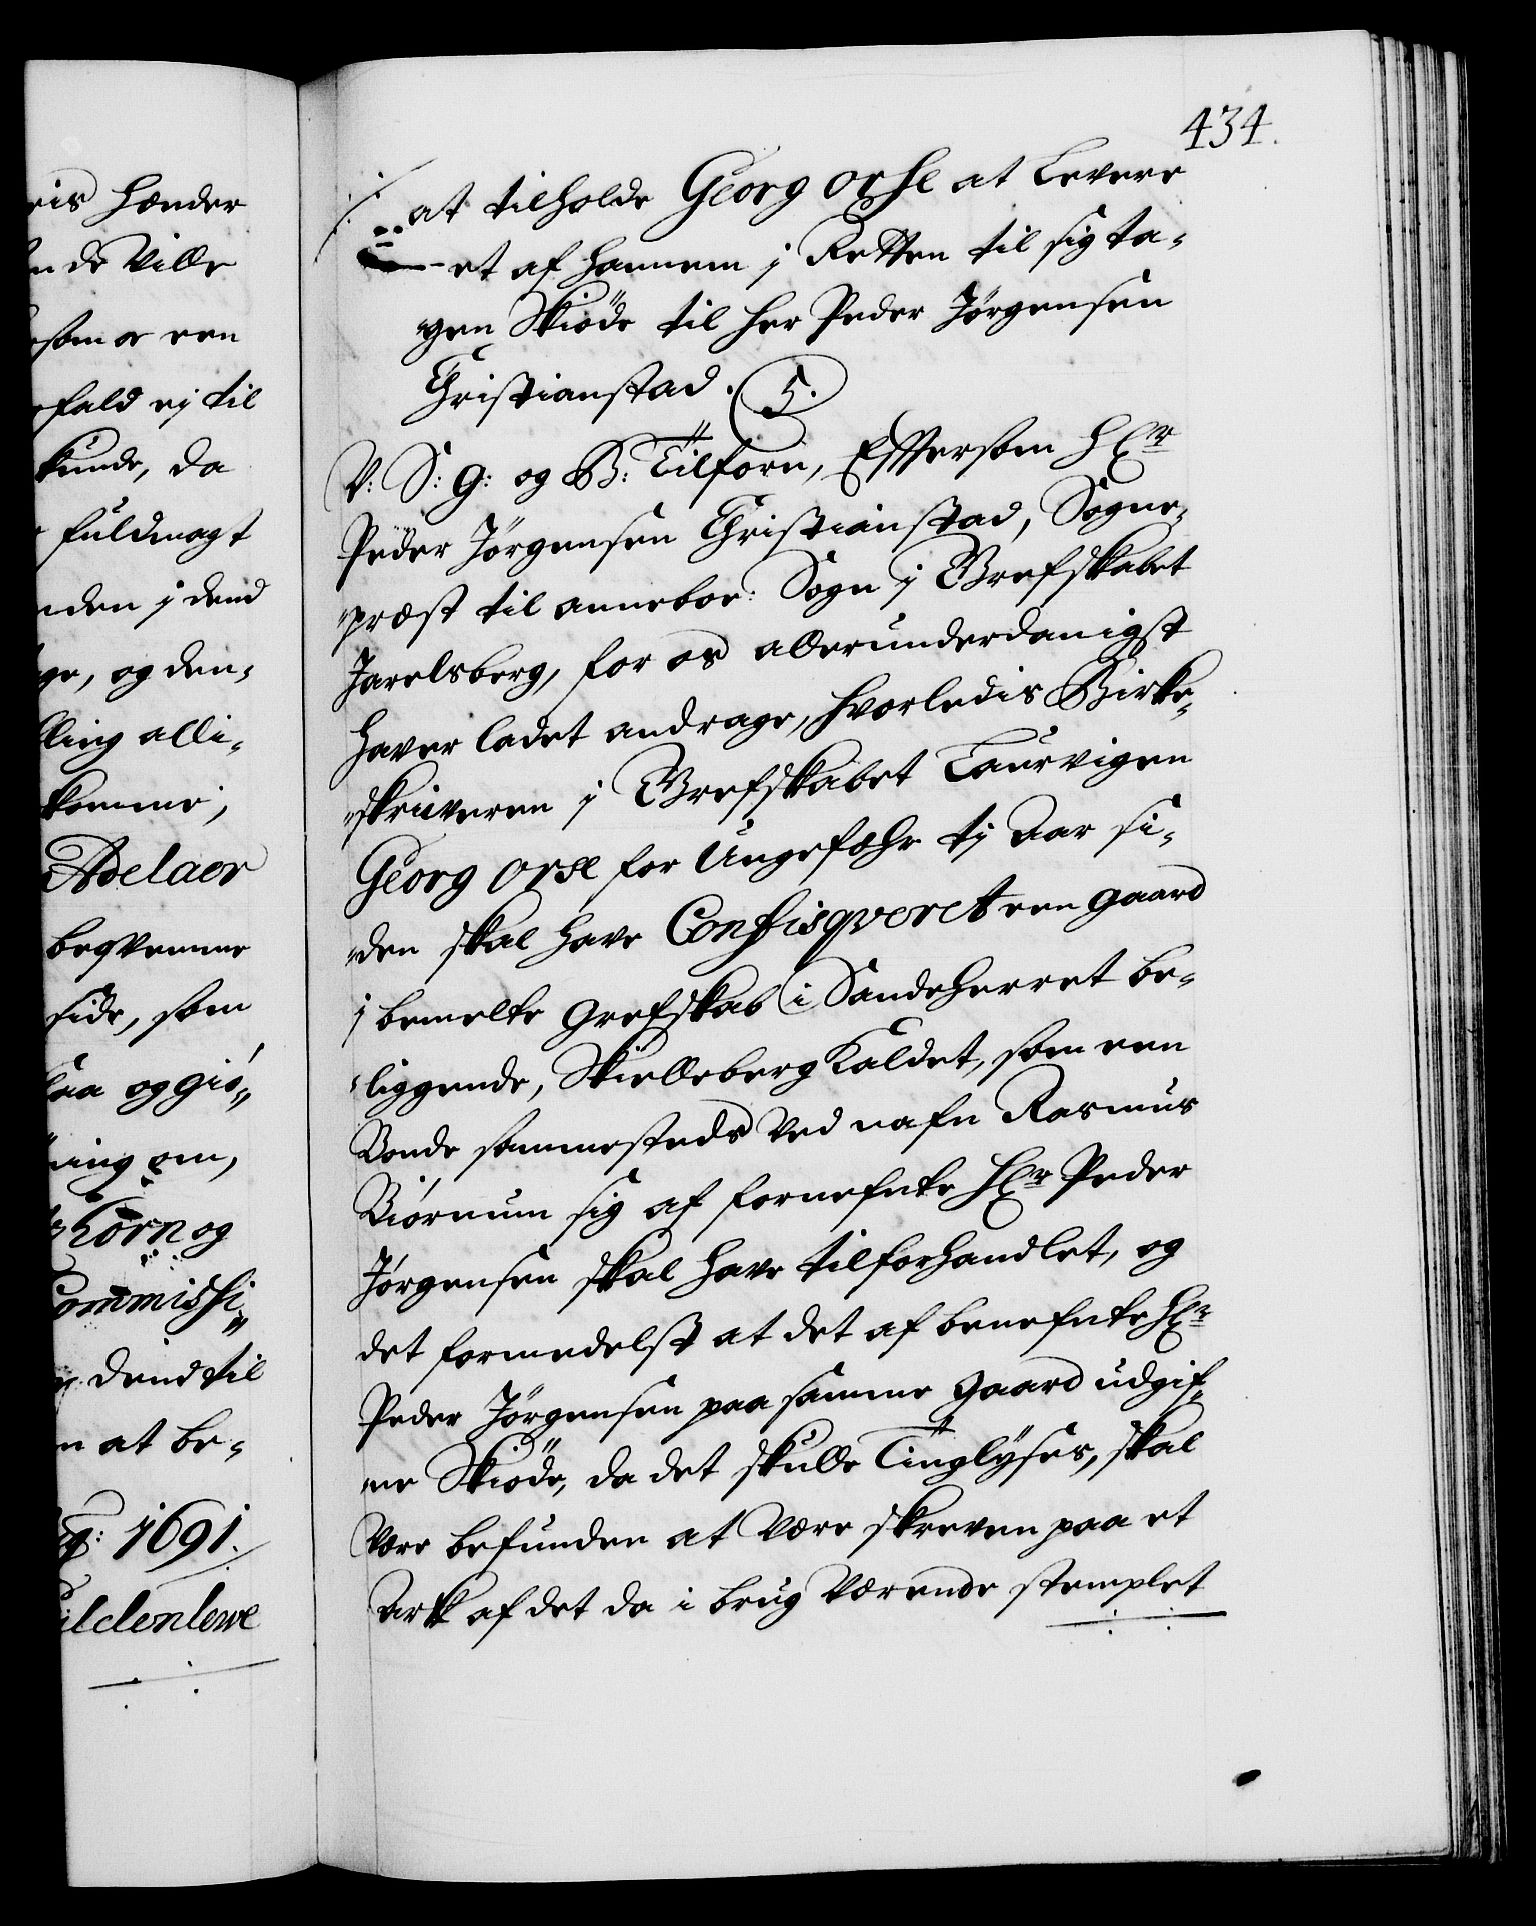 eis hænder
de Ville
som er een
fald ej til
kunde, da
fuldmagt
nden j dend
ge, og den-
ling alli-
komme,
Adelaer
beqvemme
side, som
saa og giö-
ning om,
Korn og
Commissi-
dend til
n at be-
1691.
ildenlewe
434.
at tilholde Georg Orse at Levere
et af hannem j Retten til sig ta-
gen Skiöde til her Peder Jörgensen
Christianstad. 5.
V: S: G: og B: Tilforn, Eftersom Hr
Peder Jörgensen Christianstad, Sogne-
præst til Anneboe Sogn j Grefskabet
Jarelsberg, for os allerunderdanigst
haver ladet andrage, hvorledis Birke-
skriiveren j Grefskabet Laurvigen
Georg Orse for Ungefæhr tj Aar si-
den skal have Confisqveret een gaard
j bemelte Grefskab i Sandeherret be-
liggende, Skielleberg kaldet, som een
Bonde sammesteds ved nafn Rasmus
Biörnum sig af fornefnte Hr Peder
Jörgensen skal have tilforhandlet, og
det formedelst at det af benefnte Hr
Peder Jörgensen paa samme gaard udgif-
ne Skiöde, da det skulle Tinglyses, skal
være befunden at være skreven paa et
Ark af det da i brug værende stemplet